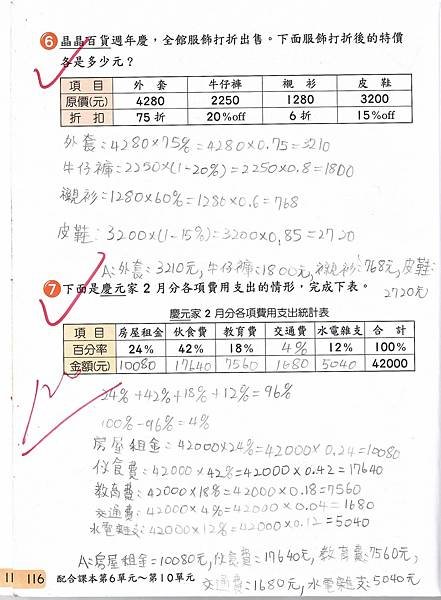 6 晶晶百貨週年慶，全館服飾打折出售。下面服飾打折後的特價
各是多少元？
項目 外套 牛仔褲 襯衫 皮鞋
原價(元) 4280 2250 1280 3200
折扣 75折 20%off 6折 15%off
外套：4280×75%=4280×0.75=3210
牛仔褲：2250×(1-20%)=2250×0.8=1800
襯衫=1280×60%=1280×0.6=768
皮鞋：3200×(1-15%)=3200×0.85=2720
A：外套：3210元，牛仔褲：1800元，襯衫：768元，皮鞋：
2720元
7 下面是慶元家2月分各項費用支出的情形，完成下表。
慶元家2月分各項費用支出統計表
項目 房屋租金 伙食費 教育費 交通費 水電雜支 合計
百分率 24% 42% 18% 4% 12% 100%
金額(元) 10080 17640 7560 1680 5040 42000
24%+42%+18%+12%=96%
100%-96%=4%
房屋租金：42000×24%=42000×0.24=10080
伙食費：42000×42%=42000×0.42=17640
教育費：42000×18%=42000×0.18=7560
交通費：42000×4%=42000×0.04=1680
水電雜支：42000×12%=42000×0.12=5040
A：房屋租金=10080元，伙食費：17640元，教育費：7560元，
交通費：1680元，水電雜支：5040元
11 116 配合課本第6單元～第10單元